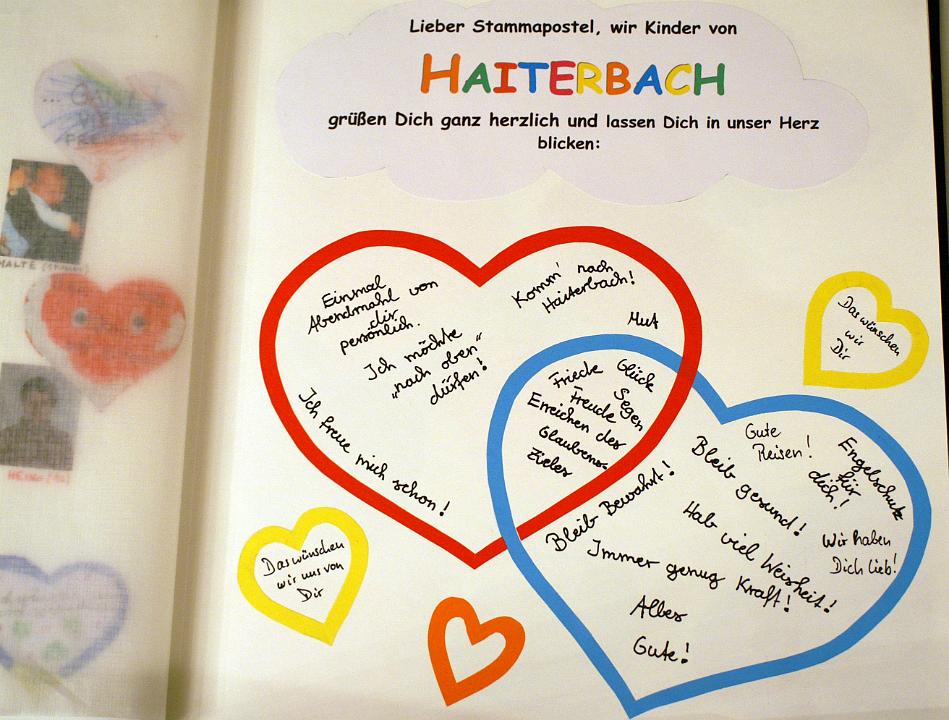 Lieber Stammapostel, wir Kinder von
HAITERBACH
grüßen Dich ganz herzlich und lassen Dich in unser Herz
blicken:
Einmal
Abendmahl von
dir
persönlich.
Ich möchte
„nach oben“
dürfen!
Ich freue mich schon!
Komm' nach
Haiterbach!
Mut
Friede
Glück
Freude
Segen
Erreichen des
Glaubens-
zieles
Das wünschen
wir
Dir
Gute
Reisen!
Engelschutz
für
dich!
Bleib gesund!
Bleib Bewahrt!
Hab viel Weisheit!
Wir haben
Dich lieb!
Immer genug Kraft!
Alles
Gute!
Das wünschen
wir uns von
Dir
MALTE
HEIKO (12)